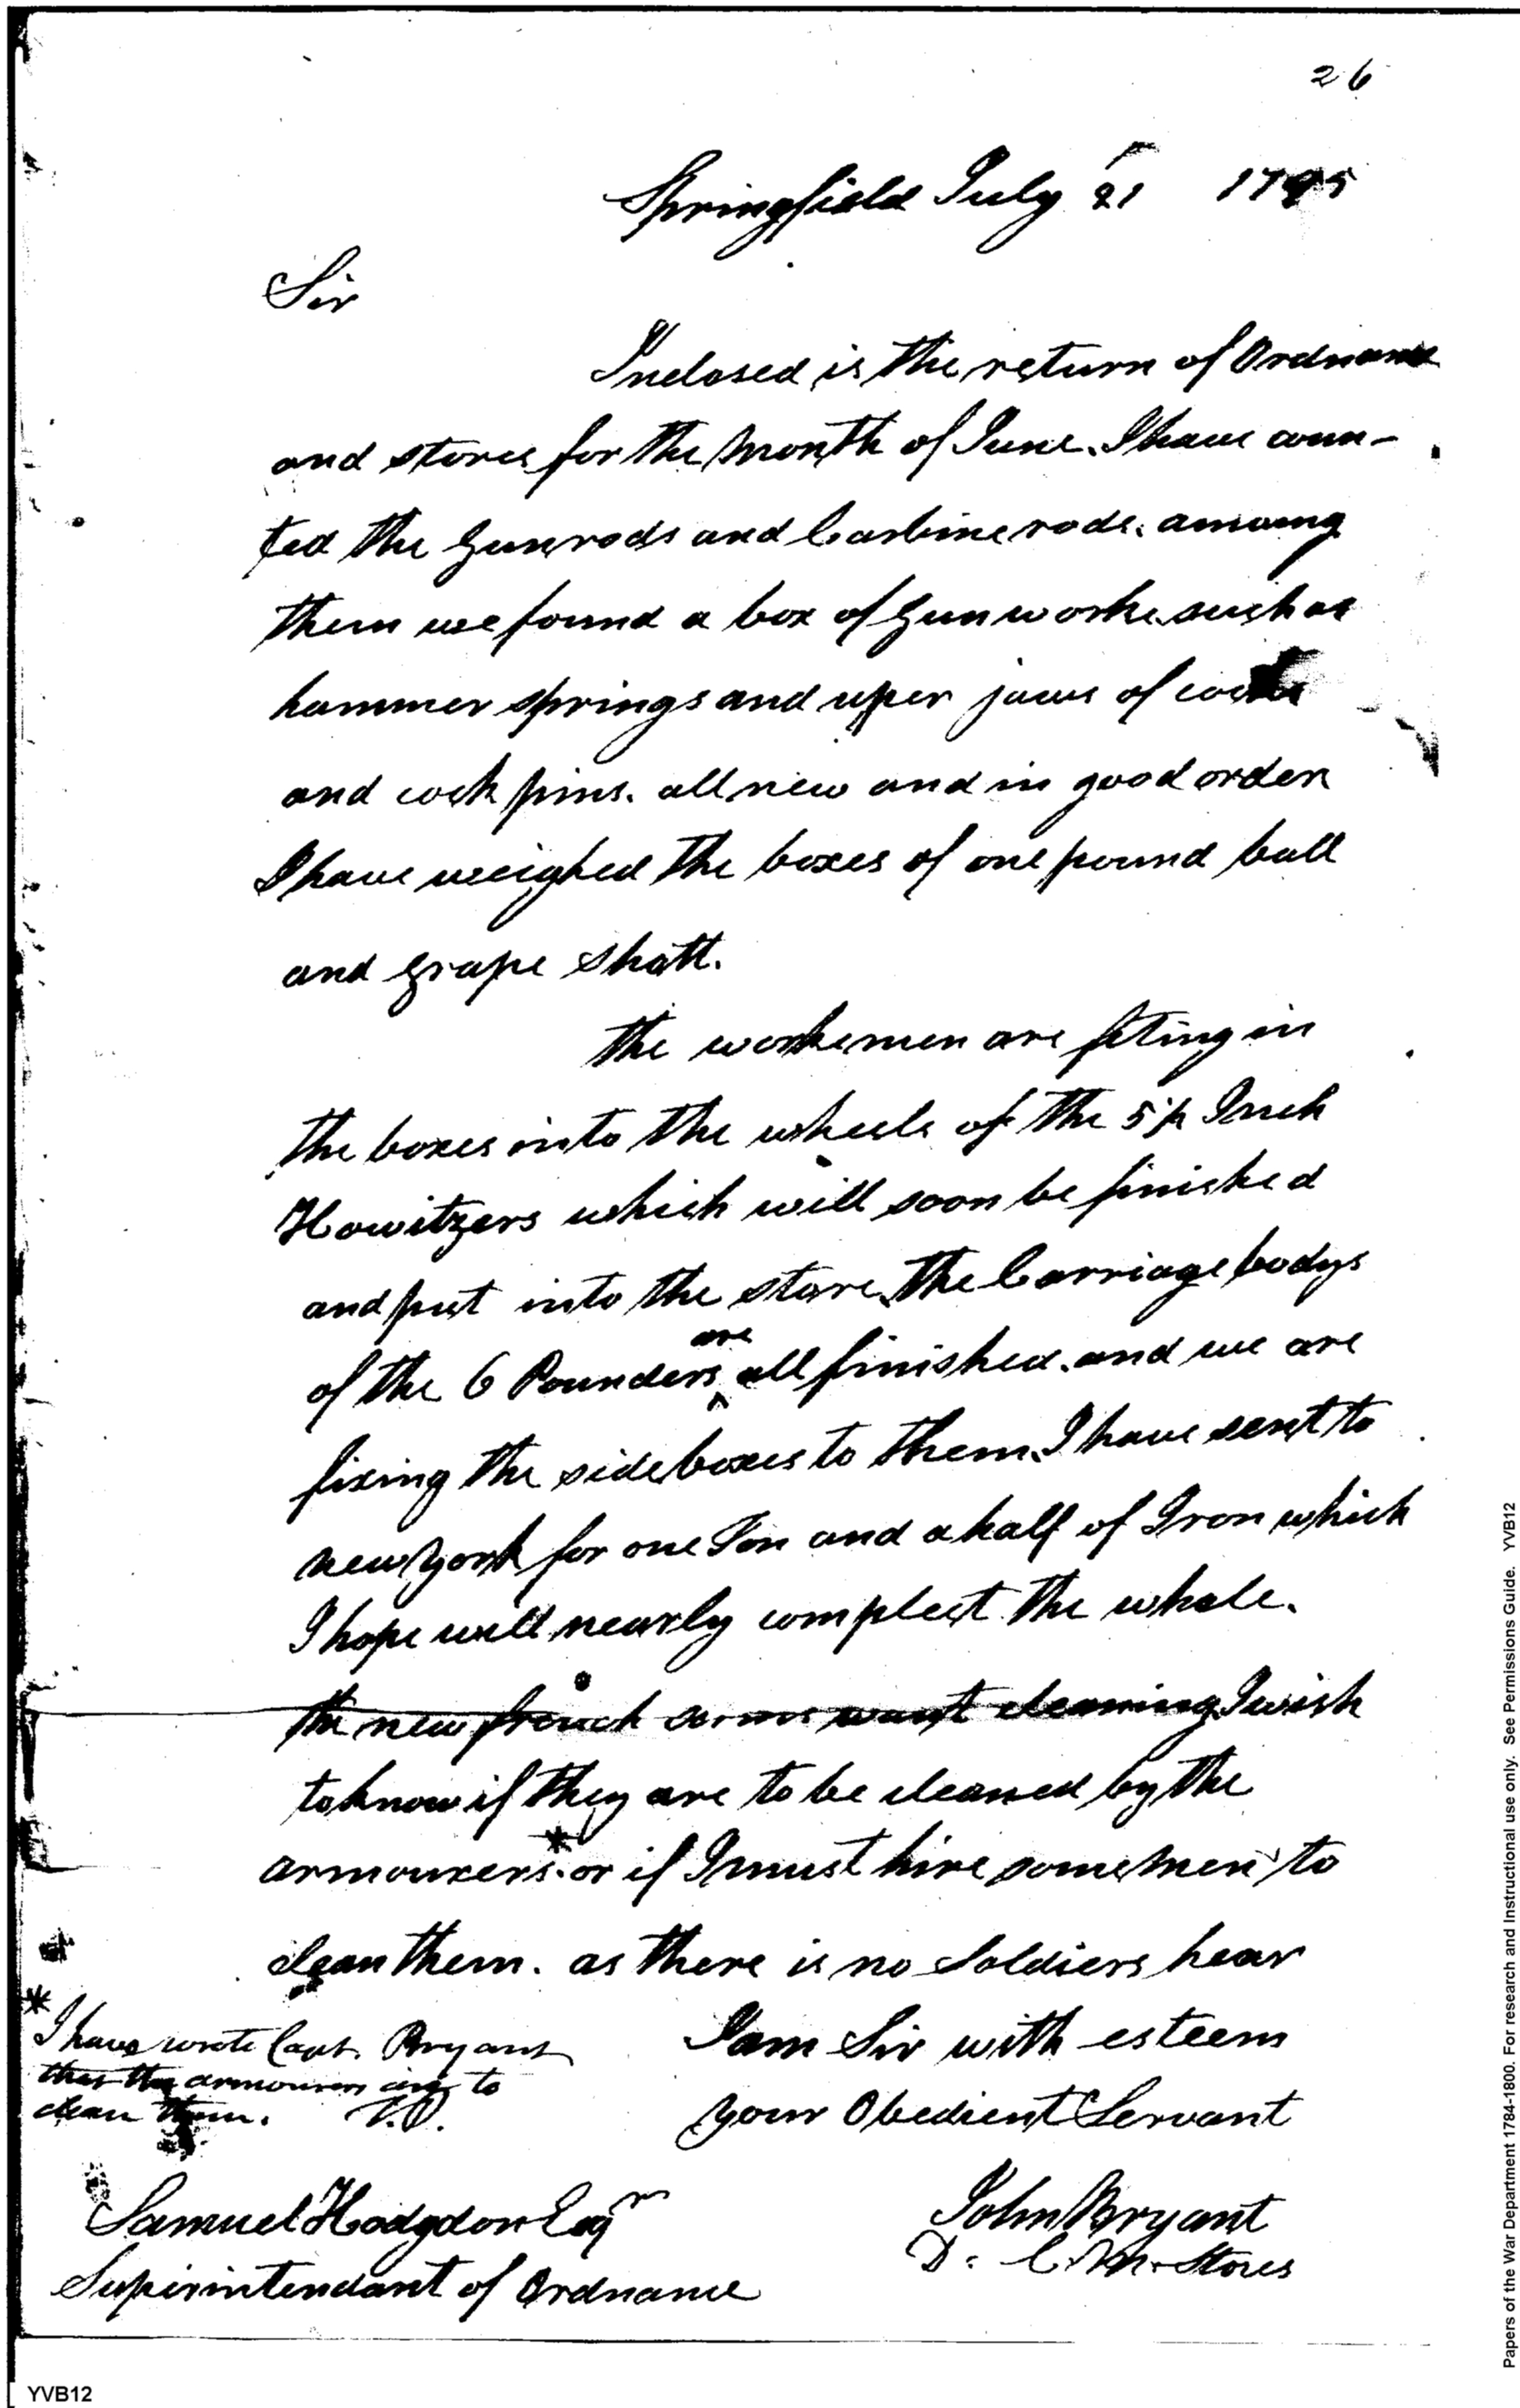 26
Springfield July 21 1795
Sir
Inclosed is the return of Ordnance
and stores for the Month of June. I have coun-
ted the Gunrods and Carbine rods. amoung
them we found a box of Gun works such as
hammer springs and uper jaws of cocks
and cock pins. all new and in good order
I have weighed the boxes of one pound ball
and Grape Shott.
the workemen are fiting in
the boxes into the wheels of the 5 1/2 Inch
Howitzers which will soon be finished
and put into the store. the Carriage bodys
are
of the 6 Pounders ^ all finished. and we are
fixing the side boxes to them. I have sent to
new york for one Ton and a half of Iron which
I hope will nearly compleet the whole.
the new french arms want cleaning. I wish
to know if they are to be cleaned by the
armourers.* or if I must hire some men to
clean them. as there is no Soldiers hear
I am Sir with esteem
your Obedient Servant
John Bryant
D. C. M. Stores
* I have wrote Capt. Bryant
that the armourers are to
clean them.
Samuel Hodgdon Esqr
Superintendant of Ordnance
YVB12
Papers of the War Department 1784-1800. For research and Instructional use only. See Permissions Guide. YVB12